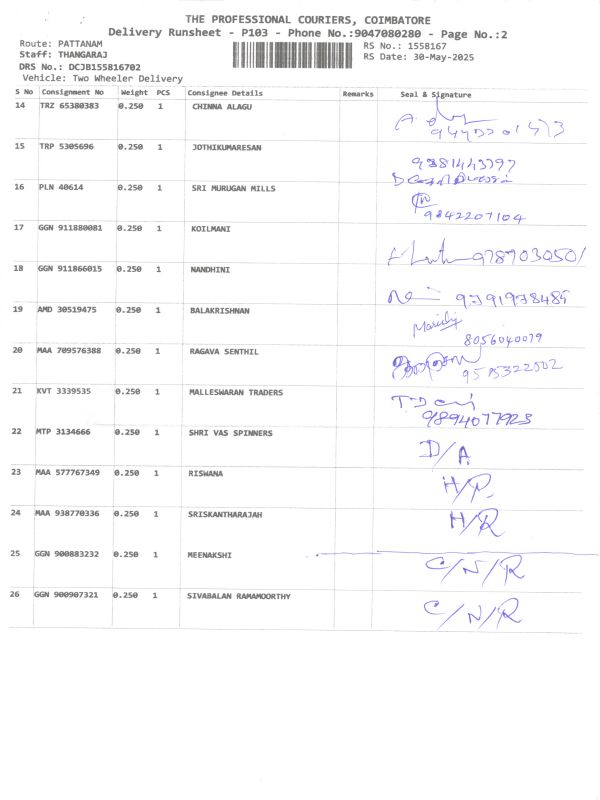 THE PROFESSIONAL COURIERS, COIMBATORE
Delivery Runsheet - P103 - Phone No.:9047080280 - Page No.:2
Route: PATTANAM
RS No.: 1558167
Staff: THANGARAJ
RS Date: 30-May-2025
DRS No.: DCJB155816702
Vehicle: Two Wheeler Delivery
S No Consignment No Weight PCS Consignee Details Remarks Seal & Signature
14 TRZ 65380383 0.250 1 CHINNA ALAGU
15 TRP 5305696 0.250 1 JOTHIKUMARESAN
9381443797
16 PLN 40614 0.250 1 SRI MURUGAN MILLS
9842207104
17 GGN 911880081 0.250 1 KOILMANI
18 GGN 911866015 0.250 1 NANDHINI
9791978485
19 AMD 30519475 0.250 1 BALAKRISHNAN
8056040079
20 MAA 709576388 0.250 1 RAGAVA SENTHIL
21 KVT 3339535 0.250 1 MALLESWARAN TRADERS
9894077923
22 MTP 3134666 0.250 1 SHRI VAS SPINNERS D/A
23 MAA 577767349 0.250 1 RISWANA H/P
24 MAA 938770336 0.250 1 SRISKANTHARAJAH H/R
25 GGN 900883232 0.250 1 MEENAKSHI C/N/R
26 GGN 900907321 0.250 1 SIVABALAN RAMAMOORTHY C/N/R